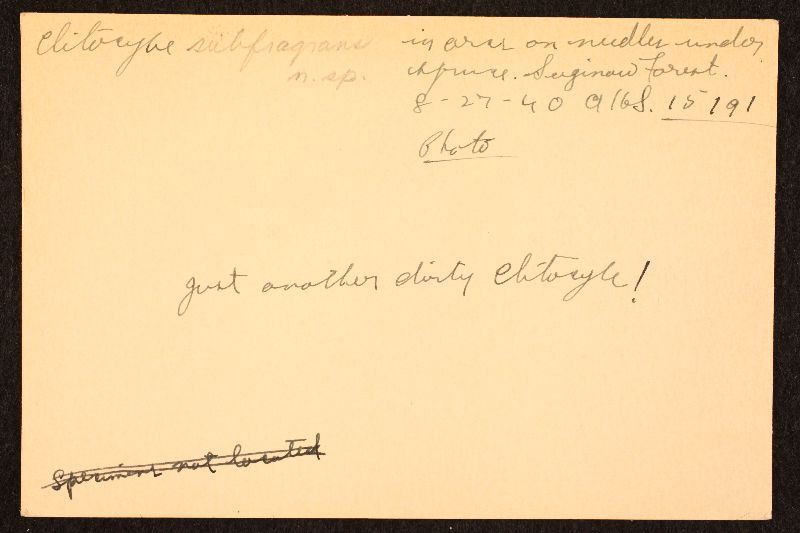 Clitocybe subfragrans
n. sp.
in arcs on needles under
spruce. Saginaw Forest.
8-27-40 AHS. 15191
Photo
just another dirty Clitocybe!
Specimens not located